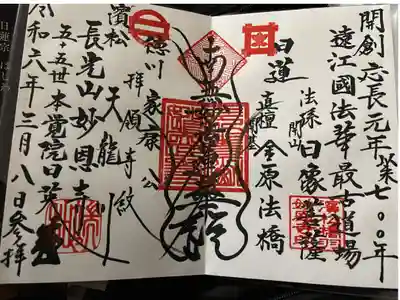 開創応長元年 第七〇〇年
遠江國法華最古道場
法孫 日像菩薩
開山
日蓮
直檀 金原法橋
開基
南無妙法蓮華経
徳川家康公
拝領寺紋
濱松 天龍川
長光山妙恩寺
五十五世 本覚院日英
令和六年三月八日参拝
日蓮宗